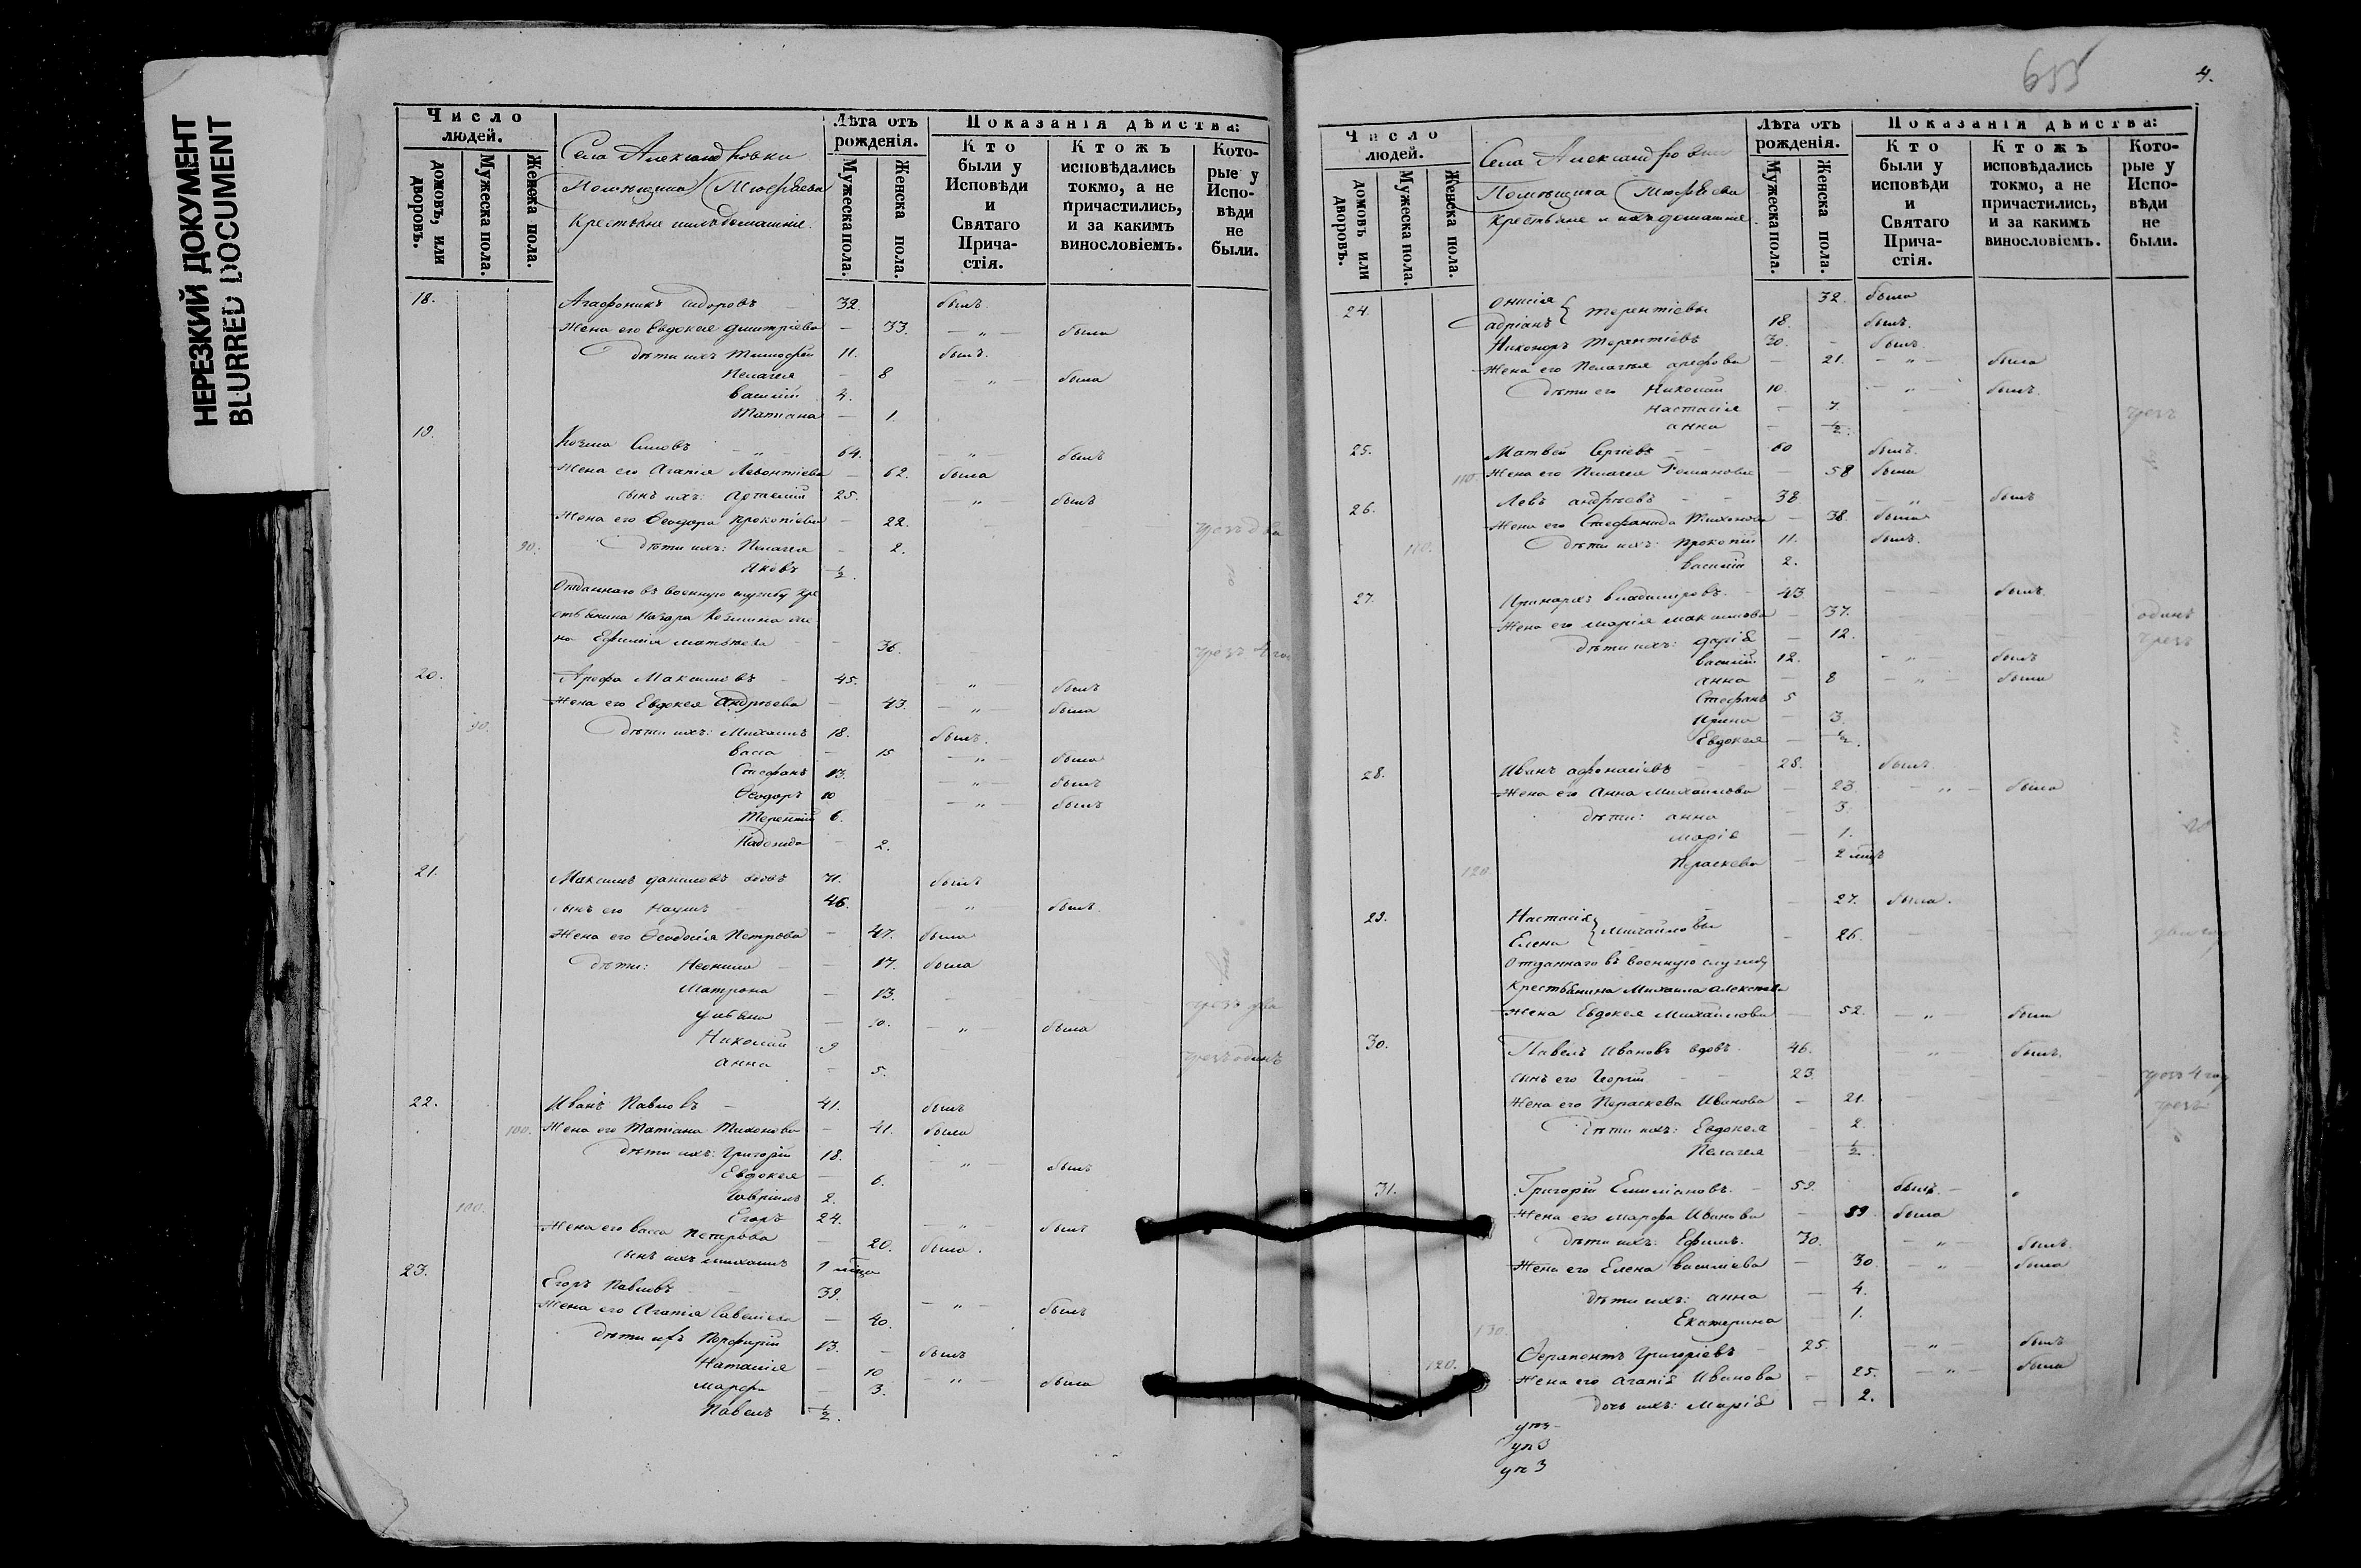 НЕРЕЗКИЙ ДОКУМЕНТ
BLURRED DOCUMENT
Число людей.
домовъ, или дворовъ.
Мужеска пола.
Женска пола.
Села Александровки
Помѣщика
Крестьяне и ихъ домашніе.
Лѣта отъ рожденія.
Мужеска пола.
Женска пола.
Показанія дѣйства:
Кто были у Исповѣди и Святаго Прича-стія.
Ктожъ исповѣдались токмо, а не причастились, и за какимъ винословіемъ.
Кото-рые у Испо-вѣди не были.
18. Агафоникъ Сидоровъ 32. былъ
Жена его Евдокея Дмитріева 33. была
Дѣти ихъ Тимофей 11. былъ.
Пелагея 8 была
Василій 4.
Татіана 1.
19. Козма Симовъ 64. былъ
Жена его Агапія Леонтіева 62. была
Сынъ ихъ: Артемій 25. былъ
Жена его Ѳеодора Прокопіева 22. чрезъ два
90. Дѣти ихъ: Пелагея 2.
Яковъ ½.
Отданнаго въ военную службу кре
стьянина Назара Козмина же
на Ефимія Матвѣева 36. чрезъ 4 го
20. Арефа Максимовъ 45. былъ
Жена его Евдокея Андреева 43. была
90. Дѣти ихъ: Михаилъ 18. былъ.
Васса 15 была
Стефанъ 13. былъ
Ѳеодоръ 10 былъ
Терентій 6.
Надежда 2.
21. Максимъ Даниловъ вдовъ 71. былъ
Сынъ его Наумъ 46. былъ.
Жена его Ѳеодосія Петрова 47. была
Дѣти: Неонила 17. была
Матрона 13. чрезъ два
Ульяна 10. была
Николай 9 чрезъ одинъ
Анна 5.
22. Иванъ Павловъ 41. былъ
100. Жена его Татіана Тихонова 41. была
Дѣти ихъ: Григорій 18. былъ
Евдокея 6.
Гавріилъ 2.
100. Егоръ 24. былъ
Жена его Васса Петрова 20. была.
Сынъ ихъ Михаилъ 1 мѣца
23. Егоръ Павловъ 39. былъ
Жена его Агапія Савеліева 40.
Дѣти ихъ Порфирій 13. былъ
Наталія 10 была
Марфа 3.
Павелъ ½.
655
4.
Число людей.
домовъ или дворовъ.
Мужеска пола.
Женска пола.
Села Александровки
Помѣщика
Крестьяне и ихъ домашніе.
Лѣта отъ рожденія.
Мужеска пола.
Женска пола.
Показанія дѣйства:
Кто были у исповѣди и Святаго Прича-стія.
Ктожъ исповѣдались токмо, а не причастились, и за какимъ винословіемъ.
Кото-рые у Испо-вѣди не были.
24. Онисія 32. была
Адріанъ } Терентіевы 18. былъ.
Никоноръ Терентіевъ 30. былъ.
Жена его Пелагея Арефова 21. была
Дѣти его Николай 10. былъ.
Настасія 7. чрезъ
Анна ½.
25. Матвей Сергѣевъ 60 былъ.
110. Жена его Пелагея Романова 58 была
26. Левъ Андреевъ 38 былъ
Жена его Стефанида Тихонова 38. была
110. Дѣти ихъ: Прокопій 11. былъ.
Василій 2.
27. Иринархъ Владиміровъ 43. былъ.
Жена его Марія Максимова 37. одинъ
Дѣти ихъ: Дарія 12. чрезъ
Василій 12. былъ
Анна 8 была
Стефанъ 5
Ирина 3.
Евдокея ½.
28. Иванъ Афонасіевъ 28. былъ.
Жена его Анна Михаилова 23. была
Дѣти: Анна 3.
Марія 1.
120. Параскева 2 мѣц
29. Настасія 27. была.
Елена } Михаиловы 26.
Отданнаго въ военную службу
Крестьянина Михаила Алексѣева
Жена Евдокея Михаилова 52. была
30. Павелъ Ивановъ вдовъ 46. былъ.
Сынъ его Георгій 23. чрезъ 4 го
Жена его Параскева Иванова 21. чрезъ
Дѣти ихъ: Евдокея 2.
Пелагея ½.
31. Григорій Емиліановъ 59. былъ.
Жена его Марфа Иванова 59 была
Дѣти ихъ: Ефимъ. 30. былъ.
Жена его Елена Василіева 30 была
Дѣти ихъ: Анна 4.
Екатерина 1.
130. Ѳерапонтъ Григоріевъ 25. былъ
120. Жена его Агапія Иванова 25. была
Дочь ихъ: Марія 2.